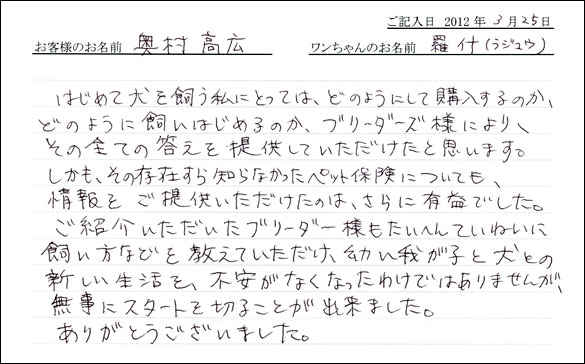 ご記入日 2012年 3月25日
お客様のお名前 奥村 高広 ワンちゃんのお名前 羅什(ラジュウ)
はじめて犬を飼う私にとっては、どのようにして購入するのか、
どのように飼いはじめるのか、ブリーダーズ様により、
その全ての答えを提供していただけたと思います。
しかも、その存在すら知らなかったペット保険についても、
情報をご提供いただけたのは、さらに有益でした。
ご紹介いただいたブリーダー様もたいへんていねいに
飼い方などを教えていただけ、幼い我が子と犬との
新しい生活を、不安がなくなったわけではありませんが、
無事にスタートを切ることが出来ました。
ありがとうございました。